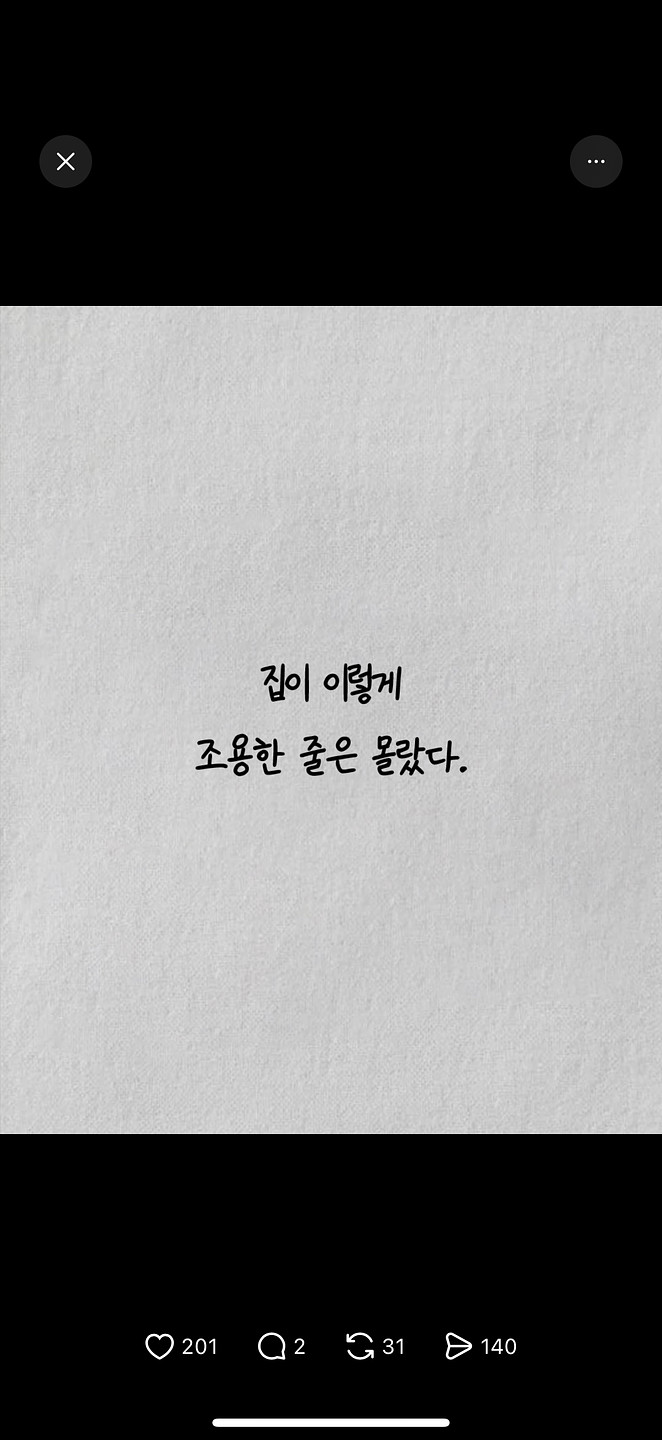 집이 이렇게
조용한 줄은 몰랐다.
201 2 31 140